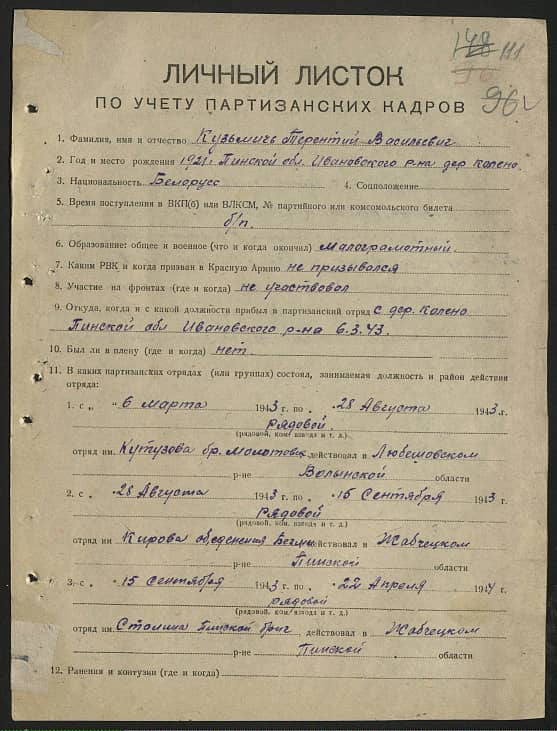 148 111
96
ЛИЧНЫЙ ЛИСТОК
ПО УЧЕТУ ПАРТИЗАНСКИХ КАДРОВ
1. Фамилия, имя и отчество Кузьмичь Терентий Васильевич
2. Год и место рождения 1921г. Пинской обл. Ивановского р-на дер Колено.
3. Национальность Белорусс 4. Соцположение
5. Время поступления в ВКП(б) или ВЛКСМ, № партийного или комсомольского билета
б/п.
6. Образование: общее и военное (что и когда окончил) малограмотный.
7. Каким РВК и когда призван в Красную Армию не призывался
8. Участие на фронтах (где и когда) не участвовал
9. Откуда, когда и с какой должности прибыл в партизанский отряд с дер. Колено
Пинской обл Ивановского р-на 6.3.43.
10. Был ли в плену (где и когда) нет.
11. В каких партизанских отрядах (или группах) состоял, занимаемая должность и район действия
отряда:
1. с „ 6 марта 1943 г. по „ 28 Августа 1943 г.
рядовой.
(рядовой, ком. взвода и т. д.)
отряд им. Кутузова бр. Молотова действовал в Любешовском
р-не Волынской области
2. с „ 28 Августа 1943 г. по „ 15 Сентября 1943 г.
рядовой
(рядовой, ком. взвода и т. д.)
отряд им Кирова обеденения Бегмы действовал в Жабчецком
р-не Пинской области
3. с „ 15 Сентября 1943 г. по „ 22 Апреля 1944 г.
рядовой
(рядовой, ком. взвода и т. д.)
отряд им. Сталина Пинской бриг действовал в Жабчецком
р-не Пинской области
12. Ранения и контузии (где и когда)